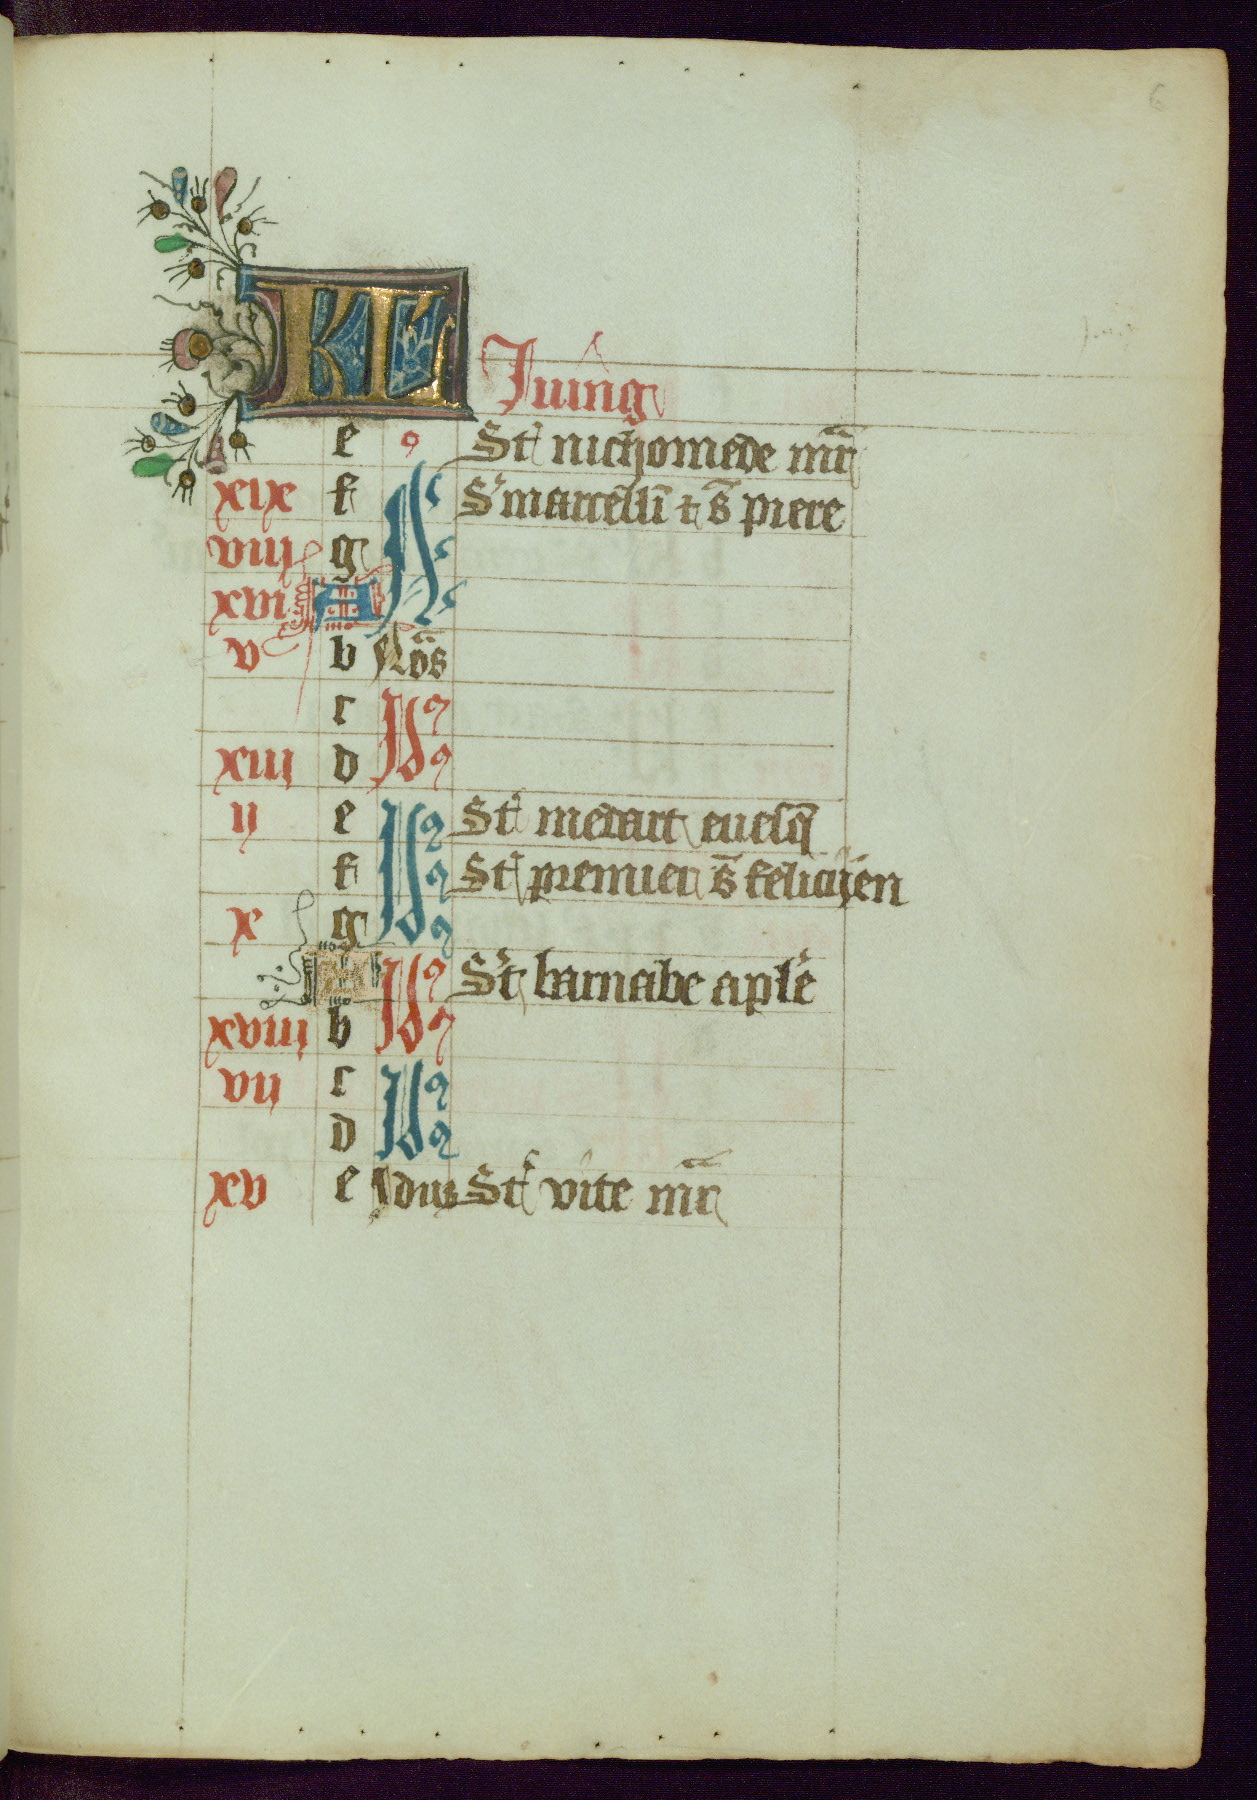 6
KL Juing
e St nichomede mr̄
xix f St marcelli ⁊ s̄ piere
viii g
xvi A
v b Nōs
c
xiii d
ii e St medart euesq̄
f St premier s̄ felicyen
x g
A St barnabe aple
xviii b
vii c
d
xv e Jdus St vite mr̄